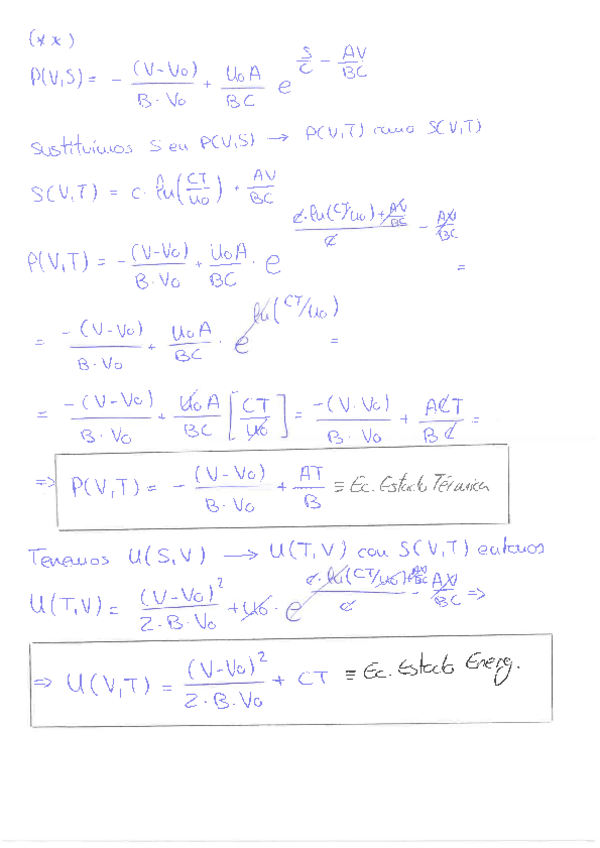 (**)
P(V,S) = - (V-V₀)/(B·V₀) + U₀A/(BC) e^(S/C - AV/(BC))
Sustituimos S en P(V,S) → P(V,T) como S(V,T)
S(V,T) = C·ln(CT/U₀) + AV/(BC)
P(V,T) = - (V-V₀)/(B·V₀) + U₀A/(BC) · e^((C·ln(CT/U₀) + AV/BC)/C - AV/(BC)) =
= -(V-V₀)/(B·V₀) + U₀A/(BC) · e^(ln(CT/U₀)) =
= -(V-V₀)/(B·V₀) + U₀A/(BC) [CT/U₀] = -(V-V₀)/(B·V₀) + ACT/(BC) =
=> P(V,T) = - (V-V₀)/(B·V₀) + AT/B ≡ Ec. Estado Térmica
Tenemos U(S,V) → U(T,V) con S(V,T) entonces
U(T,V) = (V-V₀)²/(2·B·V₀) + U₀ · e^((C·ln(CT/U₀) + AV/BC)/C - AV/(BC)) =>
=> U(V,T) = (V-V₀)²/(2·B·V₀) + CT ≡ Ec. Estado Energ.